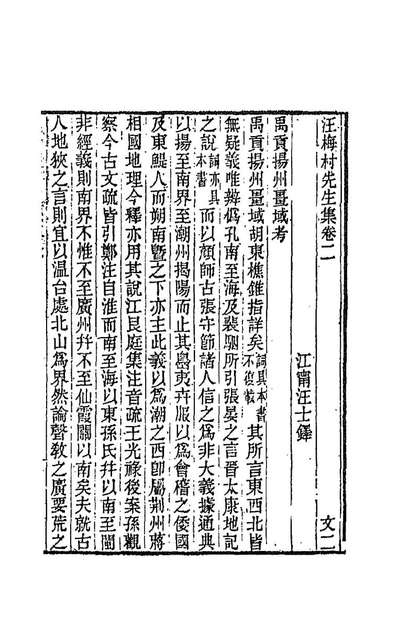 汪梅村先生集卷二
江甯汪士鐸
文二
禹貢揚州畺域考
禹貢揚州畺域胡東樵錐指詳矣詞具本書不復載其所言東西北皆
無疑義唯辨僞孔南至海及裴駰所引張晏之言晉太康地記
之說詞亦具本書而以顏師古張守節諸人信之爲非大義據通典
以揚至南界至潮州揭陽而止其島夷卉服以爲會稽之倭國
及東鯷人而朔南暨之下亦主此義以爲潮之西卽屬荆州蔣
相國地理今釋亦用其說江艮庭集注音疏王光祿後案孫觀
察今古文疏皆引鄭注自淮而南至海以東孫氏幷以南至閩
非經義則南界不惟不至廣州幷不至仙霞關以南矣夫就古
人地狹之言則宜以温台處北山爲界然論聲敎之廣要荒之